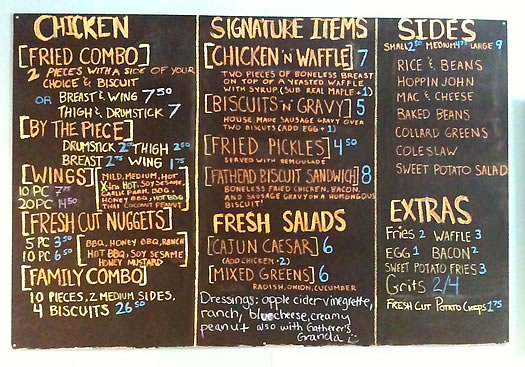 CHICKEN
[FRIED COMBO]
2 PIECES WITH A SIDE OF YOUR
CHOICE & BISCUIT
OR BREAST & WING 7 50
THIGH & DRUMSTICK 7
[BY THE PIECE]
DRUMSTICK 2 THIGH 2 50
BREAST 2 75 WING 1 75
[WINGS]
10 PC 7 75
20 PC 14 50
MILD, MEDIUM, HOT
X-tra HOT, SOY SESAME,
GARLIC PARM, BBQ,
HONEY BBQ, HOT BBQ
THAI COCONUT PEANUT
[FRESH CUT NUGGETS]
5 PC 3 50
10 PC 6 50
BBQ, HONEY BBQ, RANCH
HOT BBQ, SOY SESAME
HONEY MUSTARD
[FAMILY COMBO]
10 PIECES, 2 MEDIUM SIDES,
4 BISCUITS 26 50
SIGNATURE ITEMS
[CHICKEN 'N' WAFFLE] 7
TWO PIECES OF BONELESS BREAST
ON TOP OF A YEASTED WAFFLE
WITH SYRUP (SUB REAL MAPLE +1)
[BISCUITS 'N' GRAVY] 5
HOUSE MADE SAUSAGE GRAVY OVER
TWO BISCUITS (ADD EGG +1)
[FRIED PICKLES] 4 50
SERVED WITH REMOULADE
[FATHEAD BISCUIT SANDWICH] 8
BONELESS FRIED CHICKEN, BACON,
AND SAUSAGE GRAVY ON A HUMONGOUS
BISCUIT
FRESH SALADS
[CAJUN CAESAR] 6
(ADD CHICKEN +2)
[MIXED GREENS] 6
RADISH, ONION, CUCUMBER
Dressings: apple cider vinegrette,
ranch, bluecheese, creamy
peanut also with Gatherer's
Granola
SIDES
SMALL 2 50 MEDIUM 4 75 LARGE 9
RICE & BEANS
HOPPIN JOHN
MAC & CHEESE
BAKED BEANS
COLLARD GREENS
COLESLAW
SWEET POTATO SALAD
EXTRAS
Fries 2 WAFFLE 3
EGG 1 BACON 2
SWEET POTATO FRIES 3
Grits 2/4
FRESH CUT POTATO Chips 1 75